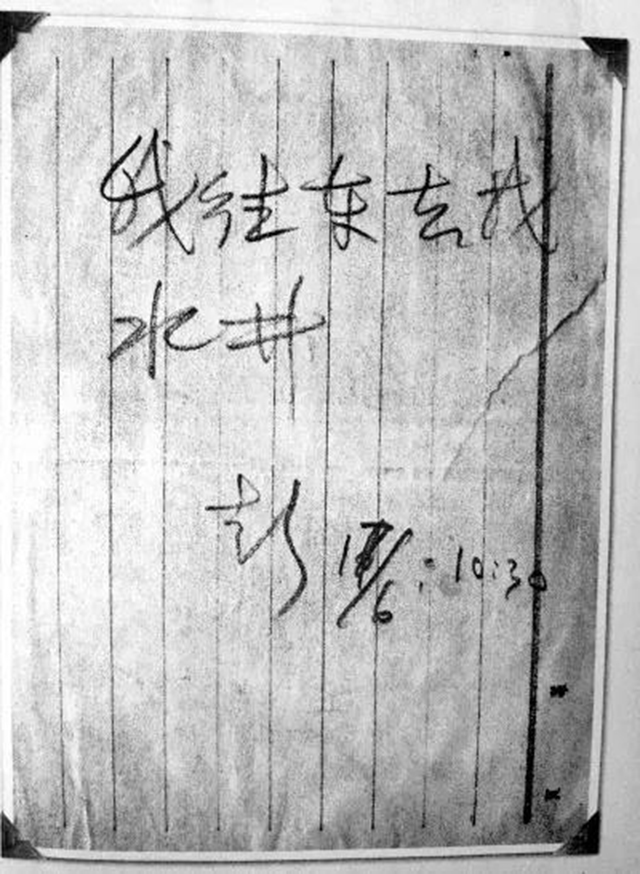 我往东去找
水井
彭 17/6:10:30